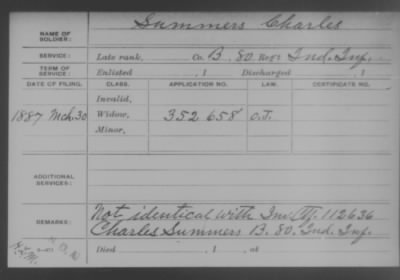 NAME OF SOLDIER: Summers Charles
SERVICE: Late rank, Co. B, 80. Ind. Inf.
TERM OF SERVICE: Enlisted , 1 Discharged , 1
DATE OF FILING. CLASS. APPLICATION NO. LAW. CERTIFICATE NO.
Invalid,
1887 Mch. 30 Widow, 352 658 O.L.
Minor,
ADDITIONAL SERVICES:
REMARKS: Not identical with Inv. 112636
Charles Summers B. 80. Ind. Inf.
Died , 1 , at